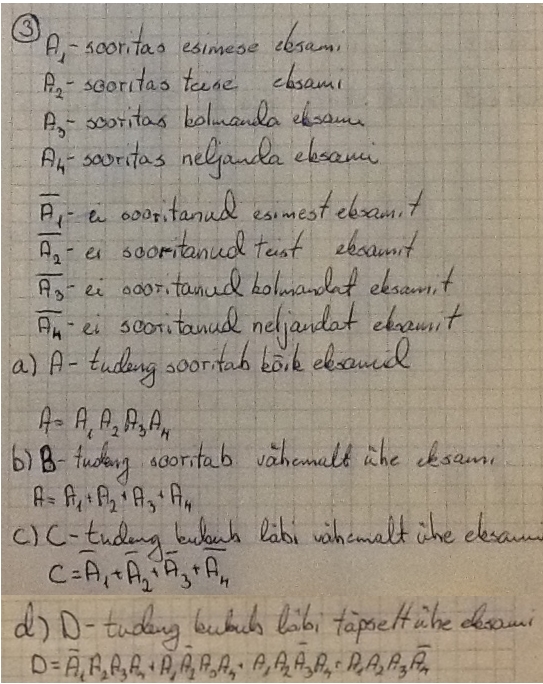 ③
A₁ - sooritas esimese eksami
A₂ - sooritas teise eksami
A₃ - sooritas kolmanda eksami
A₄ - sooritas neljanda eksami
A̅₁ - ei sooritanud esimest eksamit
A̅₂ - ei sooritanud teist eksamit
A̅₃ - ei sooritanud kolmandat eksamit
A̅₄ - ei sooritanud neljandat eksamit
a) A - tudeng sooritab kõik eksamid
A = A₁ A₂ A₃ A₄
b) B - tudeng sooritab vähemalt ühe eksami
A = A₁ + A₂ + A₃ + A₄
c) C - tudeng kukub läbi vähemalt ühe eksami
C = A̅₁ + A̅₂ + A̅₃ + A̅₄
d) D - tudeng kukub läbi täpselt ühe eksami
D = A̅₁A₂A₃A₄ + A₁A̅₂A₃A₄ + A₁A₂A̅₃A₄ + A₁A₂A₃A̅₄